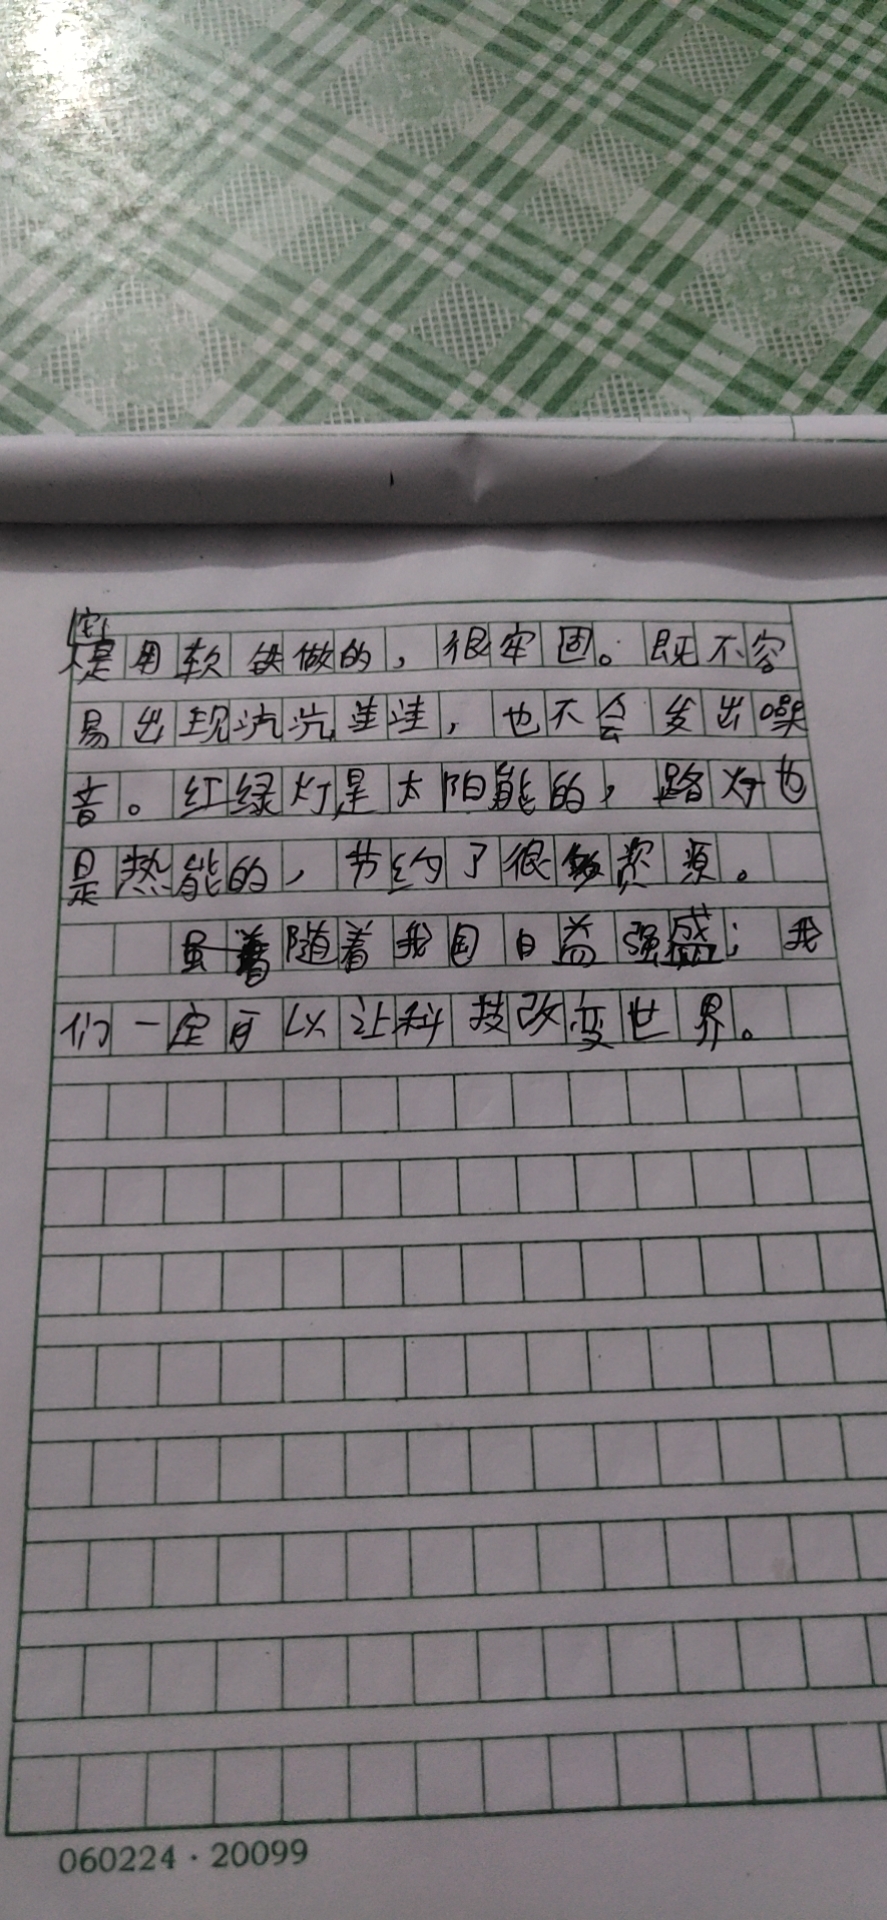 它
是用软铁做的，很牢固。既不容
易出现坑坑洼洼，也不会发出噪
音。红绿灯是太阳能的，路灯也
是热能的，节约了很多资源。
随着我国日益强盛；我
们一定可以让科技改变世界。
060224·20099